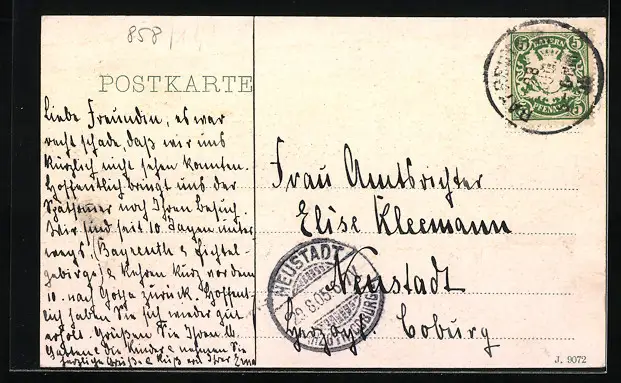 858
POSTKARTE
Liebe Freundin, es war
recht schade, daß wir uns
kürzlich nicht sehen konnten.
Hoffentlich bringt uns der
Spätsommer noch Ihren Besuch
Wir sind seit 10 Tagen unter
wegs (Bayreuth & Fichtel-
gebirge) & kehren kurz vor dem
10. nach Gotha zurück. Hoffent-
lich haben Sie sich wieder gut
erholt. Grüßen Sie Ihren lb.
Gatten & die Kinder & nehmen Sie
herzliche Grüße & Kuß von Ihrer
BAYERN
5 5
PFENNIG
Frau Amtsrichter
Elise Kleemann
Neustadt
Herzogt. Coburg
NEUSTADT
8.05
COBURG
J. 9072